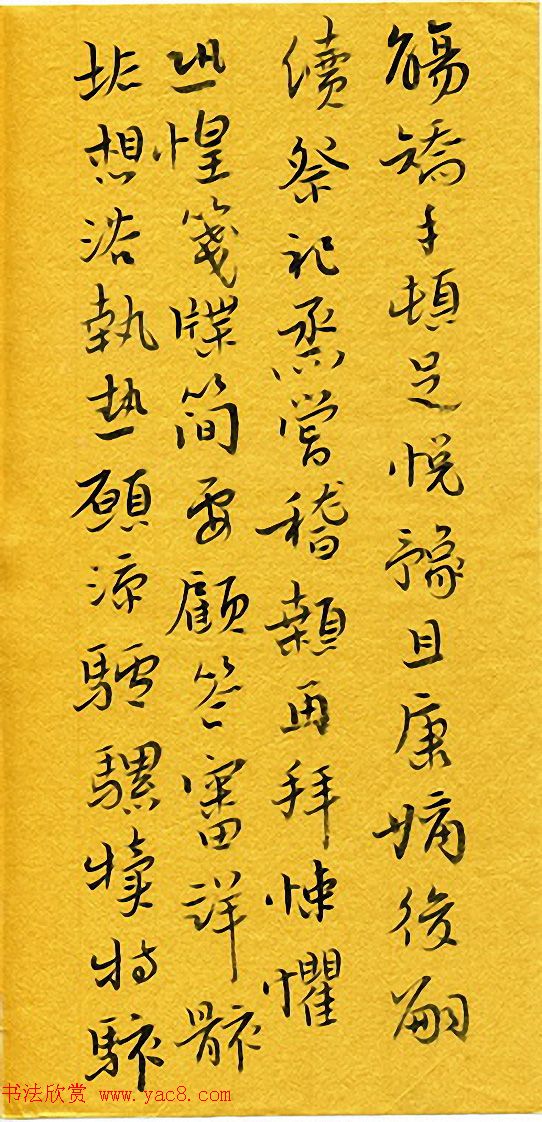 觴矯手頓足悅豫且康嫡後嗣
續祭祀烝嘗稽顙再拜悚懼
恐惶箋牒簡要顧答審詳骸
垢想浴執熱願涼驢騾犢特駭
书法欣赏 www.yac8.com